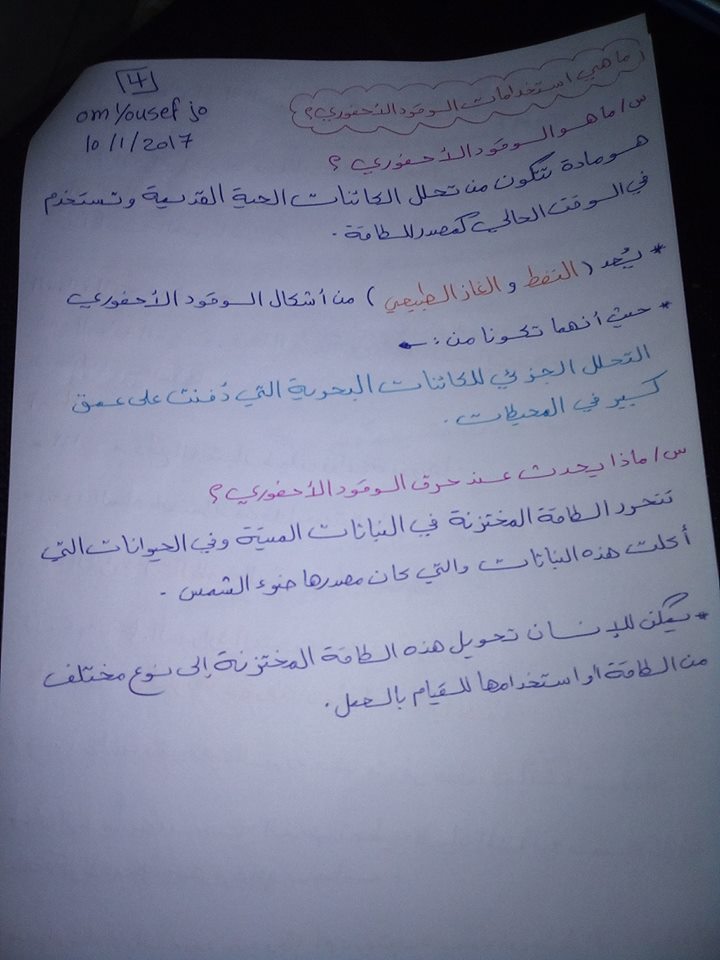 4
om Yousef jo
10/1/2017
ما هي استخدامات الوقود الأحفوري؟
س/ ما هو الوقود الأحفوري ؟
هو مادة تتكون من تحلل الكائنات الحية القديمة وتستخدم
في الوقت الحالي كمصدر للطاقة .
* يُعد ( النفط و الغاز الطبيعي ) من أشكال الوقود الأحفوري
* حيث أنهما تكونا من : ←
التحلل الجزئي للكائنات البحرية التي دُفنت على عمق
كبير في المحيطات .
س/ ماذا يحدث عند حرق الوقود الأحفوري ؟
تتحرر الطاقة المختزنة في النباتات الميتة وفي الحيوانات التي
أكلت هذه النباتات والتي كان مصدرها ضوء الشمس .
* يمكن للإنسان تحويل هذه الطاقة المختزنة إلى نوع مختلف
من الطاقة أو استخدامها للقيام بالعمل .